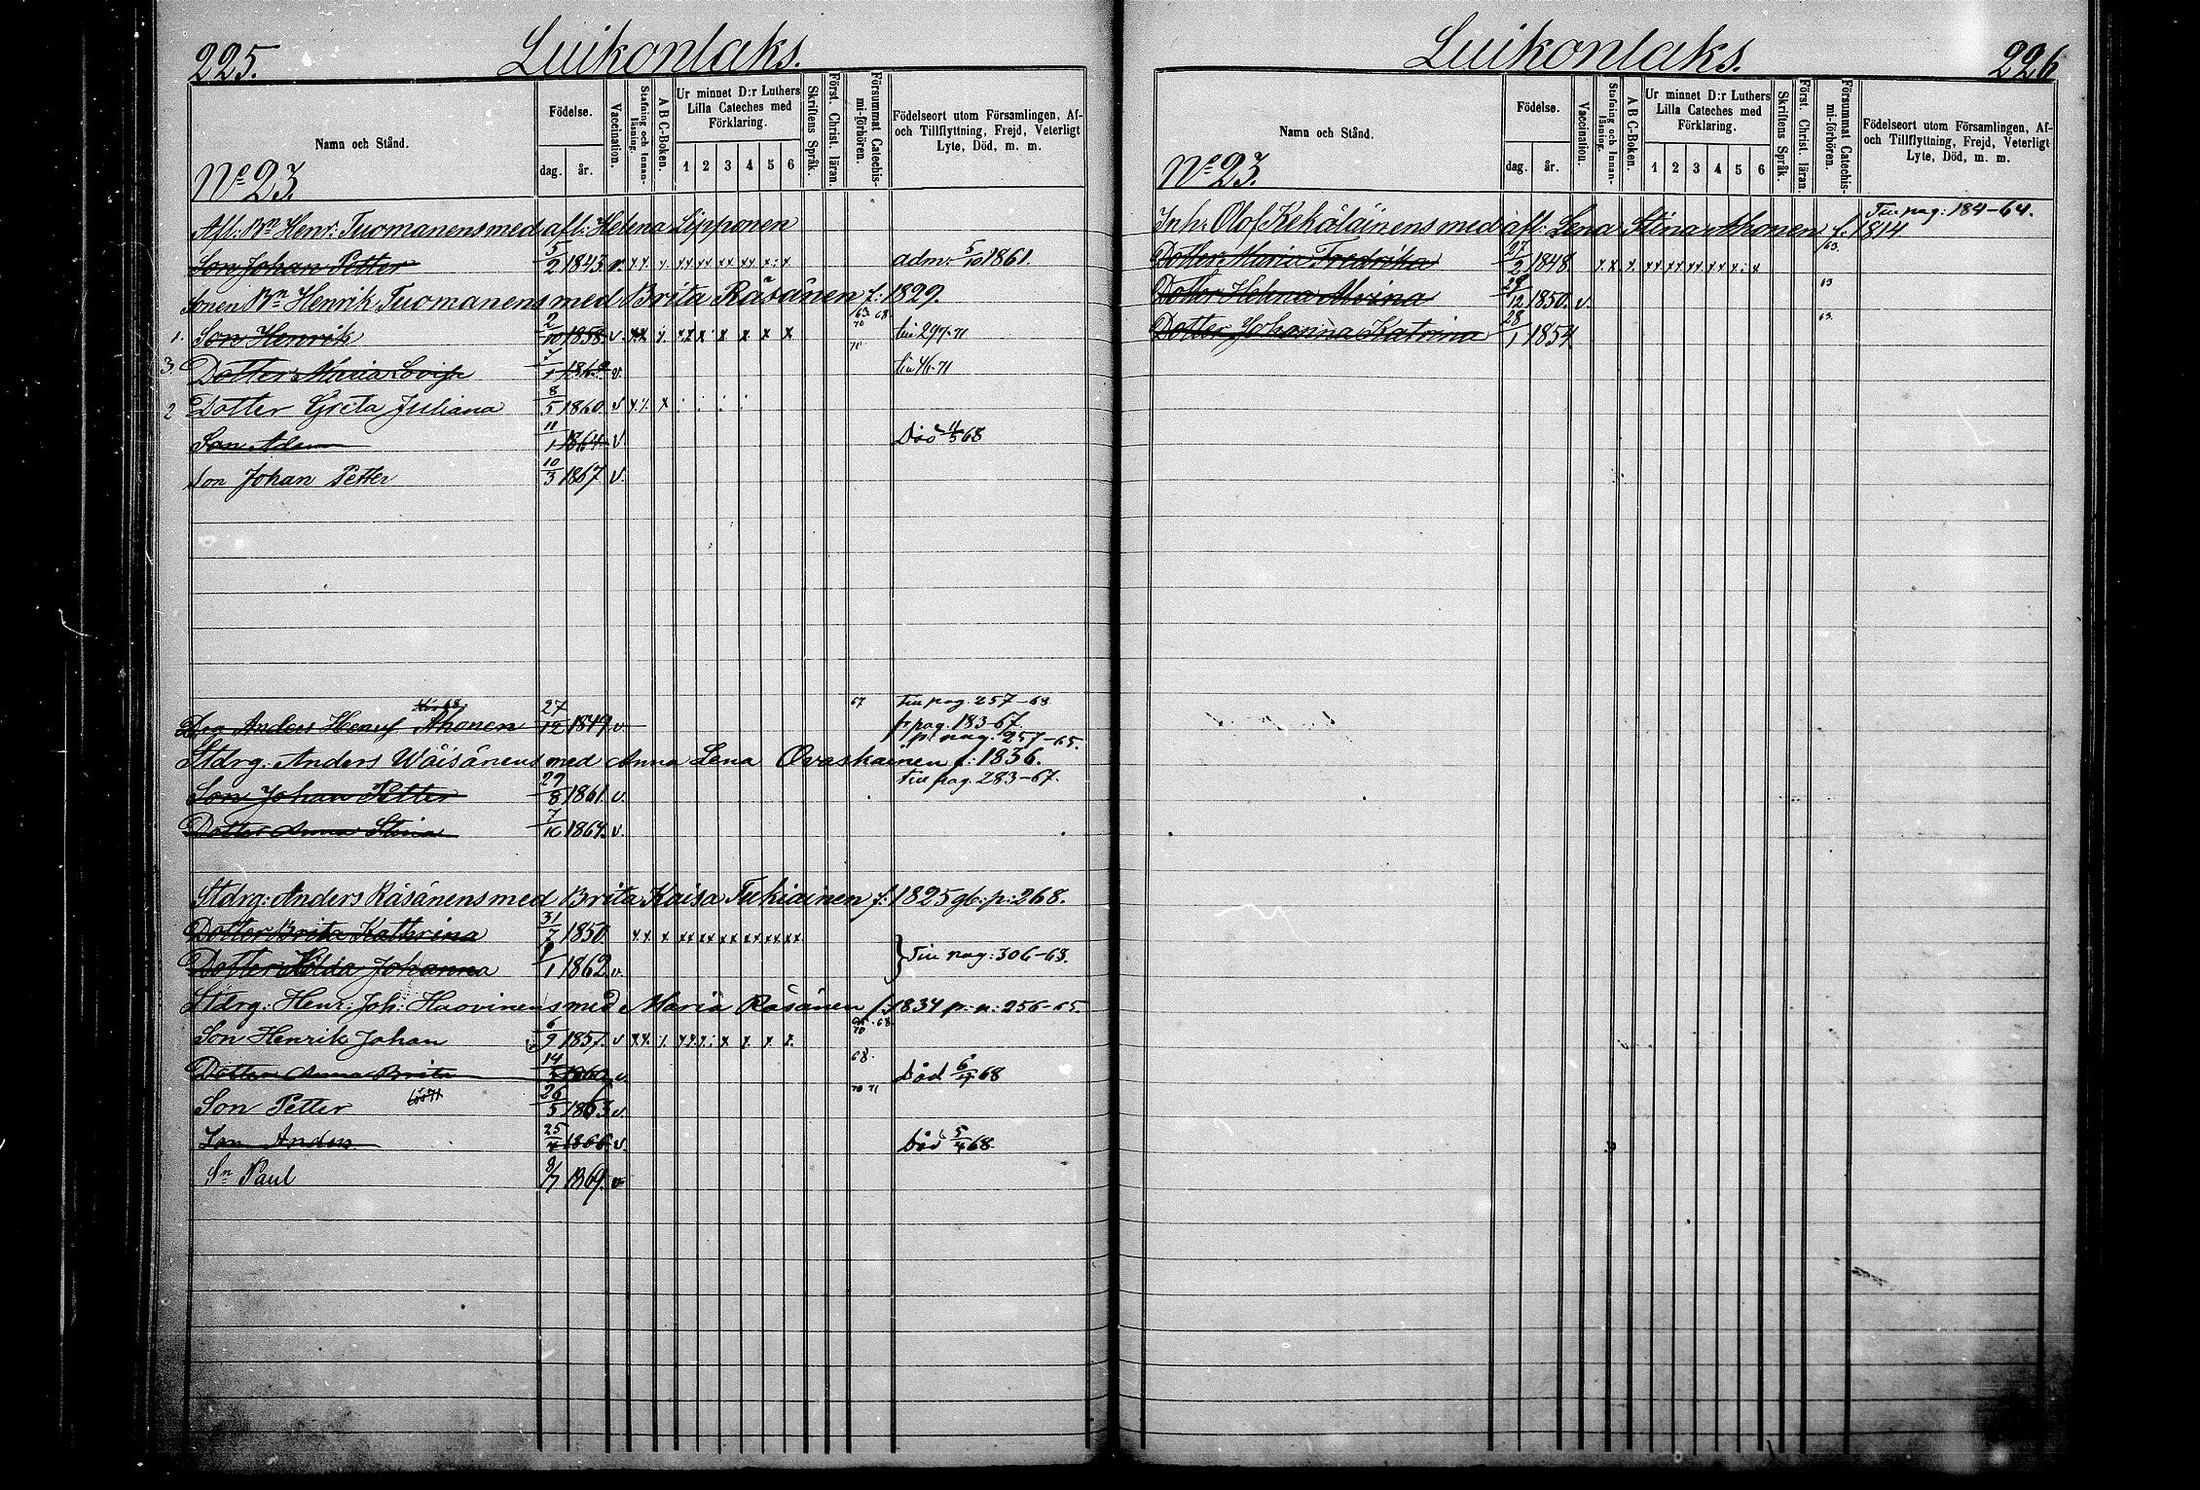 225.
Luikonlaks.
Namn och Stånd.
Födelse.
dag.
år.
Vaccination.
Stafning och Innan-läsning.
A B C-Boken.
Ur minnet D:r Luthers Lilla Cateches med Förklaring.
1 2 3 4 5 6
Skriftens Språk.
Först. Christ. läran.
Försummat Catechis-mi-förhören.
Födelseort utom Församlingen, Af- och Tillflyttning, Frejd, Veterligt Lyte, Död, m. m.
No 23.
Afl: Bn Henr: Tuomanens med afl: Helena Lipponen
Son Johan Petter 5/2 1843. v. adm. 5/10 1861.
Sonen Bn Henrik Tuomanens med Brita Räsänen f: 1829.
1. Son Henrik 2/10 1858 v 63 68 70 tin 297-71
3 Dotter Maria Lovisa 1862 v. 71 tin 46-71
2 Dotter Greta Juliana 8/5 1860 v
Son Adam 11/1 1864 v Död 11/5 68
Son Johan Petter 10/3 1867 v.
Anders Henrik Ahonen 27/12 1849 v 67 Tin pag. 257-63
fr pag. 183-67.
pr pag. 257-65.
Stdrg. Anders Wäisänens med Anna Lena Ovaskainen f: 1836.
Tin pag. 283-67.
Son Johan Petter 29/8 1861 v.
Dotter Anna Stina 7/10 1864. v.
Stdrg: Anders Räsänens med Brita Kaisa Tukiainen f: 1825 gb: p: 268.
Dotter Brita Kathrina 31/7 1850
Dotter Hilda Johanna 1/1 1862 v. Tin pag: 306-63.
Stdrg: Henr: Joh: Haovinens med Maria Räsänen f: 1834 p: p: 256-65.
Son Henrik Johan 6/9 1857. v 70 68
Dotter Anna Brita 14 1860 v. 68. Död 6/4 68
Son Petter 26/5 1863 v. 70 71
Son Anders 25/4 1866 v. Död 5/4 68
Sn Paul 9/7 1869. v
Luikonlaks.
226
Namn och Stånd.
Födelse.
dag.
år.
Vaccination.
Stafning och Innan-läsning.
A B C-Boken.
Ur minnet D:r Luthers Lilla Cateches med Förklaring.
1 2 3 4 5 6
Skriftens Språk.
Först. Christ. läran.
Försummat Catechis-mi-förhören.
Födelseort utom Församlingen, Af- och Tillflyttning, Frejd, Veterligt Lyte, Död, m. m.
No 23.
Tin pag: 184-64.
Inh: Olof Kekäläinens med afl: Lena Stina Ahonen f: 1814
Dotter Maria Fredrika 27/2 1848 63.
Dotter Helena Alvina 29/12 1850. v. 63
Dotter Johanna Katrina 28/1 1854 63.